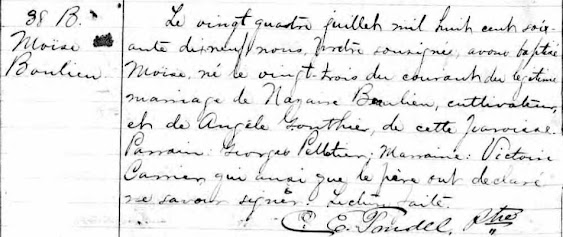 38 B.
Moïse
Boulieu
Le vingt quatre juillet mil huit cent soix-
ante dixneuf nous, Prêtre soussigné, avons baptisé
Moïse, né le vingt-trois du courant du légitime
mariage de Nazaire Boulieu, cultivateur,
et de Angèle Gonthier, de cette paroisse.
Parrain: Georges Pelletier; Marraine: Victoire
Carrier qui ainsi que le père ont déclaré
ne savoir signer. Lecture faite
E. Ptre